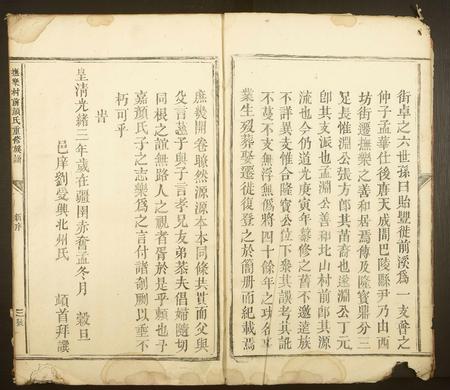 街卓之六世孫曰貽豐徙前溪為一支會之
仲子孟華仕後唐天成間巴陵縣尹乃由西
坊街遷撫樂之善和居焉傳及隆寶鼎分三
足長惟淵公張方郎其苗裔也迷淵公丁元
郎其支派也孟淵公善和北山村前郎其源
流也今仍道光庚寅年纂修之舊不邀遠族
不詳異支惟合隆寶公位下桑其誤考其訛
不蔓不支無浮無偽將四十餘年之功名事
業生歿葬娶遷徙復登之於簡册而紀載焉
庶幾開卷瞭然源源本本同條共貫而父與
父言慈子與子言孝兄友弟恭夫倡婦隨切
同根之誼無路人之視者胥於是乎賴也予
嘉顏氏子之志樂為之言付諸剞劂以垂不
朽可乎
旹
皇清光緒三年歲在疆圉赤奮孟冬月 穀旦
邑庠劉愛興北州氏 頓首拜譔
撫樂村前顏氏重修族譜 新序 三